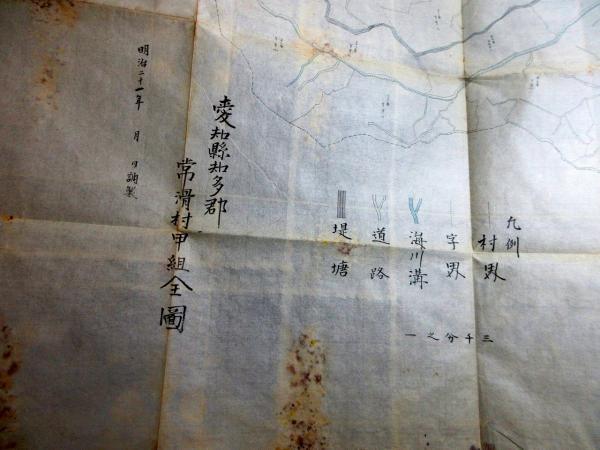 凡例
村界
字界
海川溝
道路
堤塘
三千分之一
愛知縣知多郡
常滑村甲組全圖
明治二十一年 月 日調製